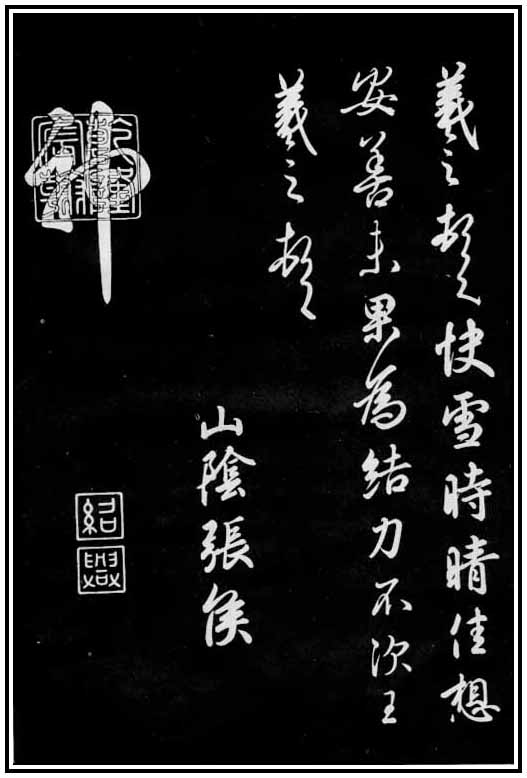 羲之頓首快雪時晴佳想
安善未果為結力不次王
羲之頓首
山陰張侯
神
乾隆
宸翰
紹
興